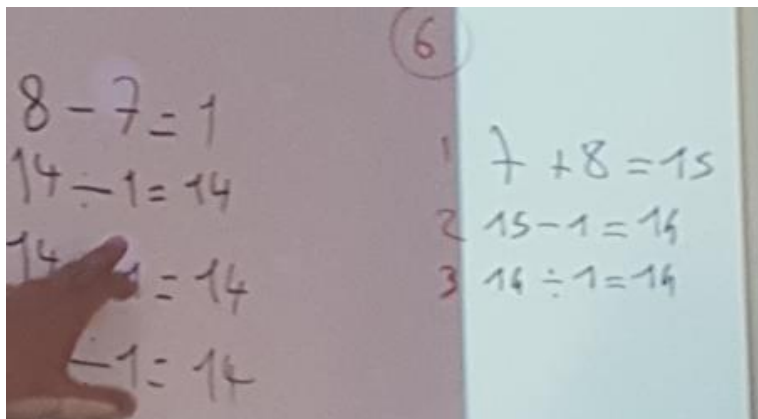 8 - 7 = 1
14 ÷ 1 = 14
14 1 = 14
÷ 1 = 14
6
1 7 + 8 = 15
2 15 - 1 = 14
3 14 ÷ 1 = 14